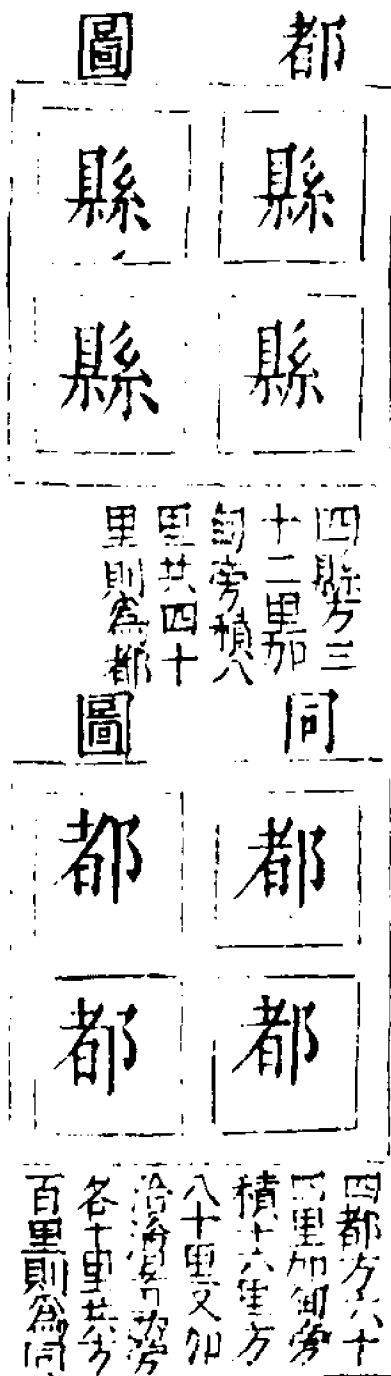 都圖
縣
縣
縣
縣
四縣方三
十二里加
甸旁積八
里共四十
里則為都
同圖
都
都
都
都
四都方六十
四里加甸旁
積十六里方
八十里又加
治澮旁
各十里共方
百里則為同